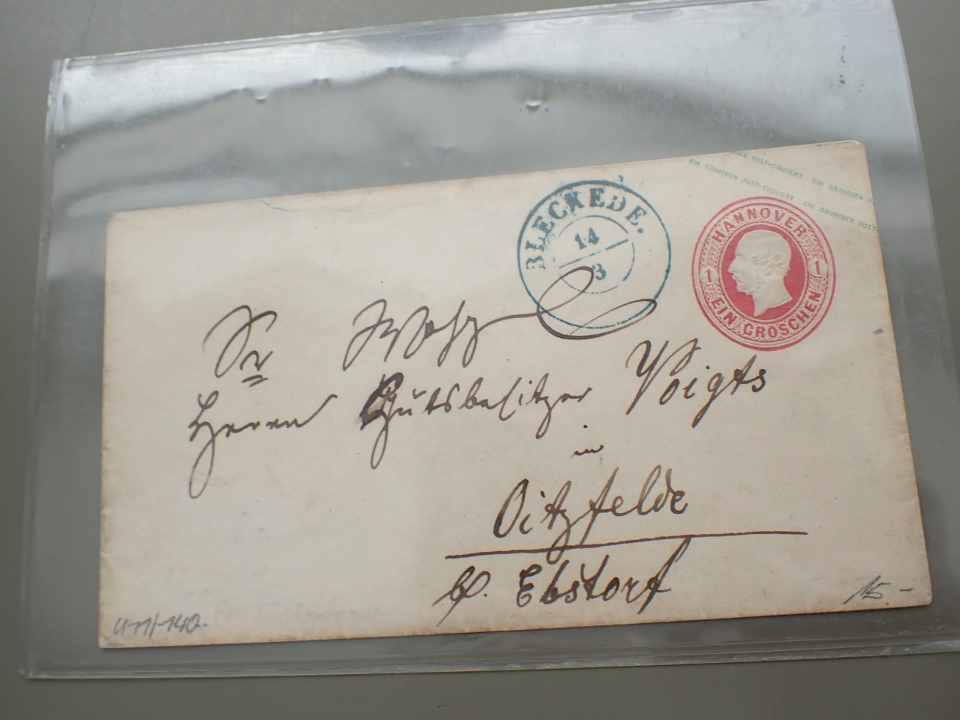 BLECKEDE.
14
3
HANNOVER
1 1
EIN GROSCHEN
Sr Wohlg
Herrn Gutsbesitzer Voigts
in
Oitzfelde
b/. Ebstorf
15.-